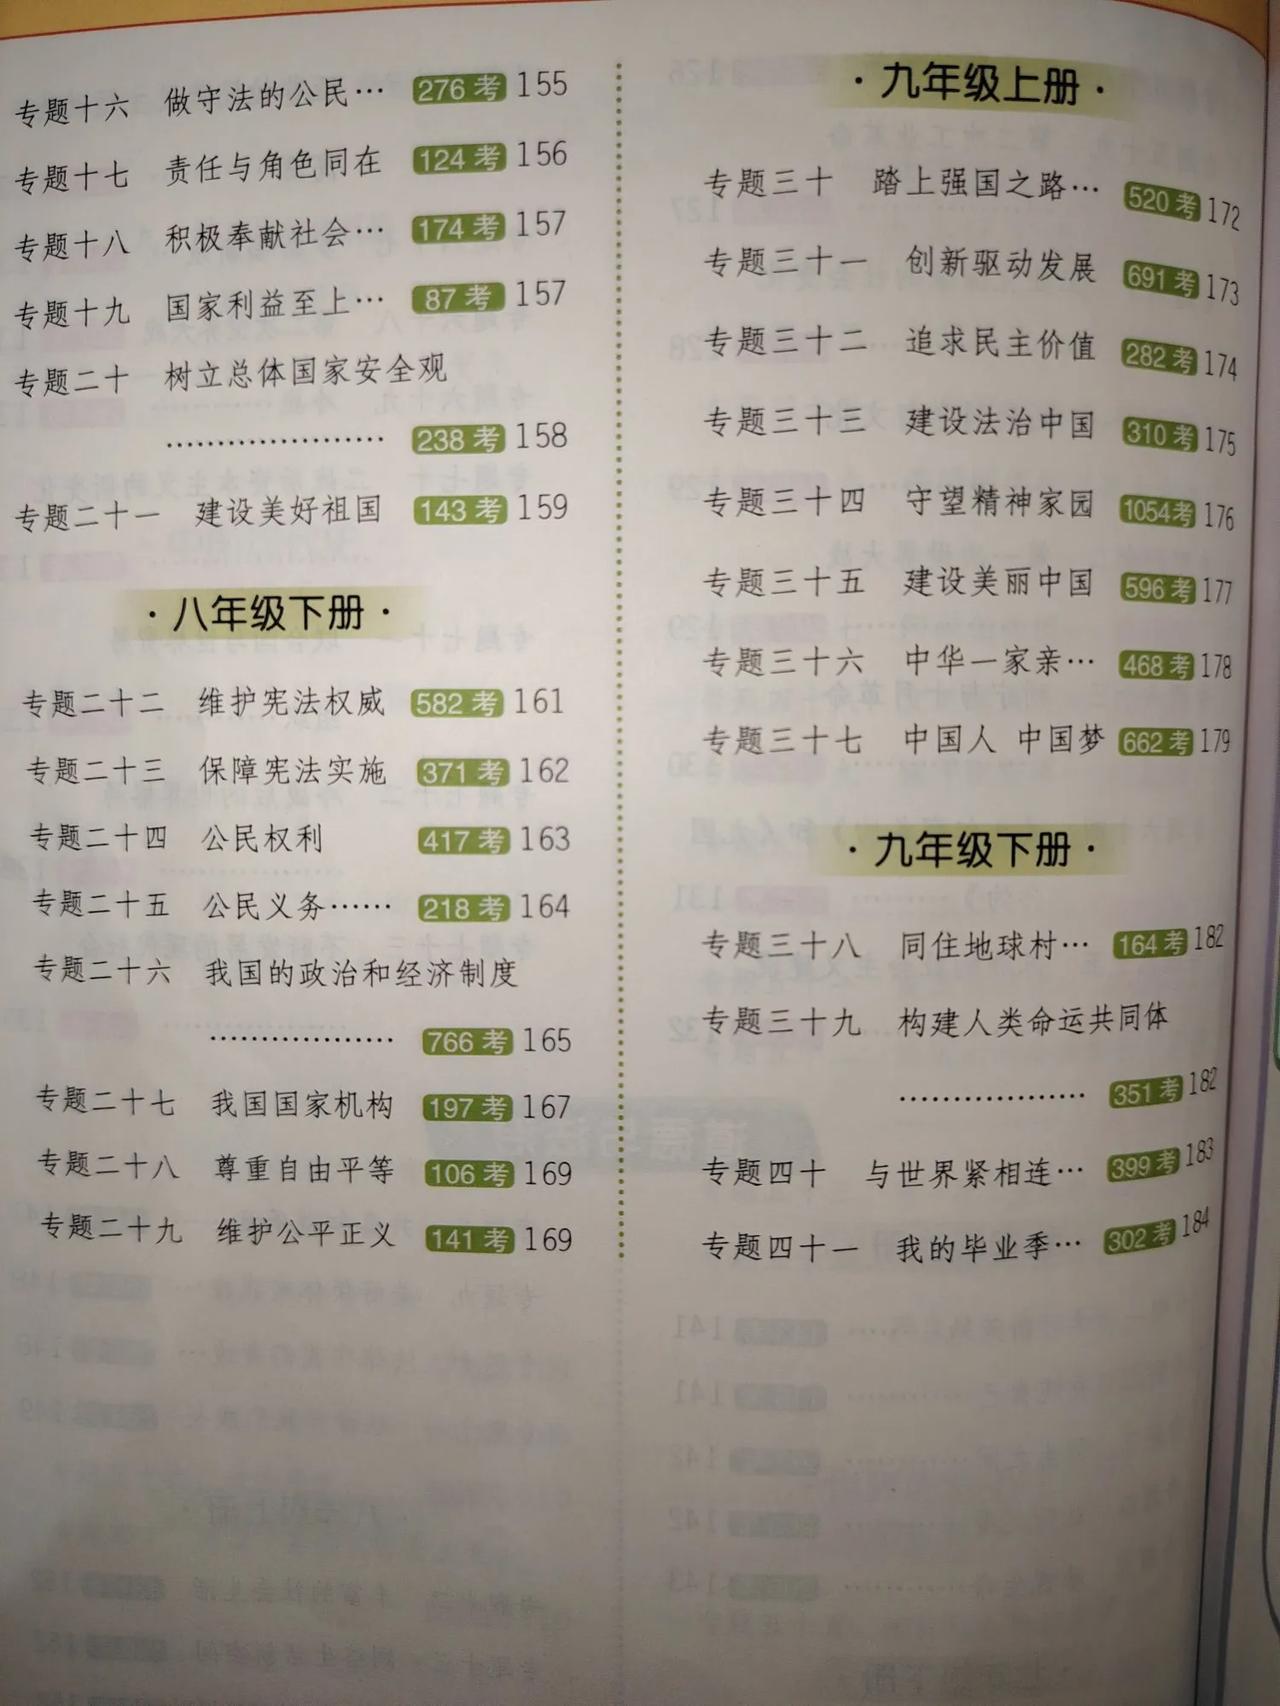 专题十六 做守法的公民… 276考 155
专题十七 责任与角色同在 124考 156
专题十八 积极奉献社会… 174考 157
专题十九 国家利益至上… 87考 157
专题二十 树立总体国家安全观
………………… 238考 158
专题二十一 建设美好祖国 143考 159
·八年级下册·
专题二十二 维护宪法权威 582考 161
专题二十三 保障宪法实施 371考 162
专题二十四 公民权利 417考 163
专题二十五 公民义务…… 218考 164
专题二十六 我国的政治和经济制度
……………… 766考 165
专题二十七 我国国家机构 197考 167
专题二十八 尊重自由平等 106考 169
专题二十九 维护公平正义 141考 169
·九年级上册·
专题三十 踏上强国之路… 520考 172
专题三十一 创新驱动发展 691考 173
专题三十二 追求民主价值 282考 174
专题三十三 建设法治中国 310考 175
专题三十四 守望精神家园 1054考 176
专题三十五 建设美丽中国 596考 177
专题三十六 中华一家亲… 468考 178
专题三十七 中国人 中国梦 662考 179
·九年级下册·
专题三十八 同住地球村… 164考 182
专题三十九 构建人类命运共同体
……………… 351考 182
专题四十 与世界紧相连… 399考 183
专题四十一 我的毕业季… 302考 184